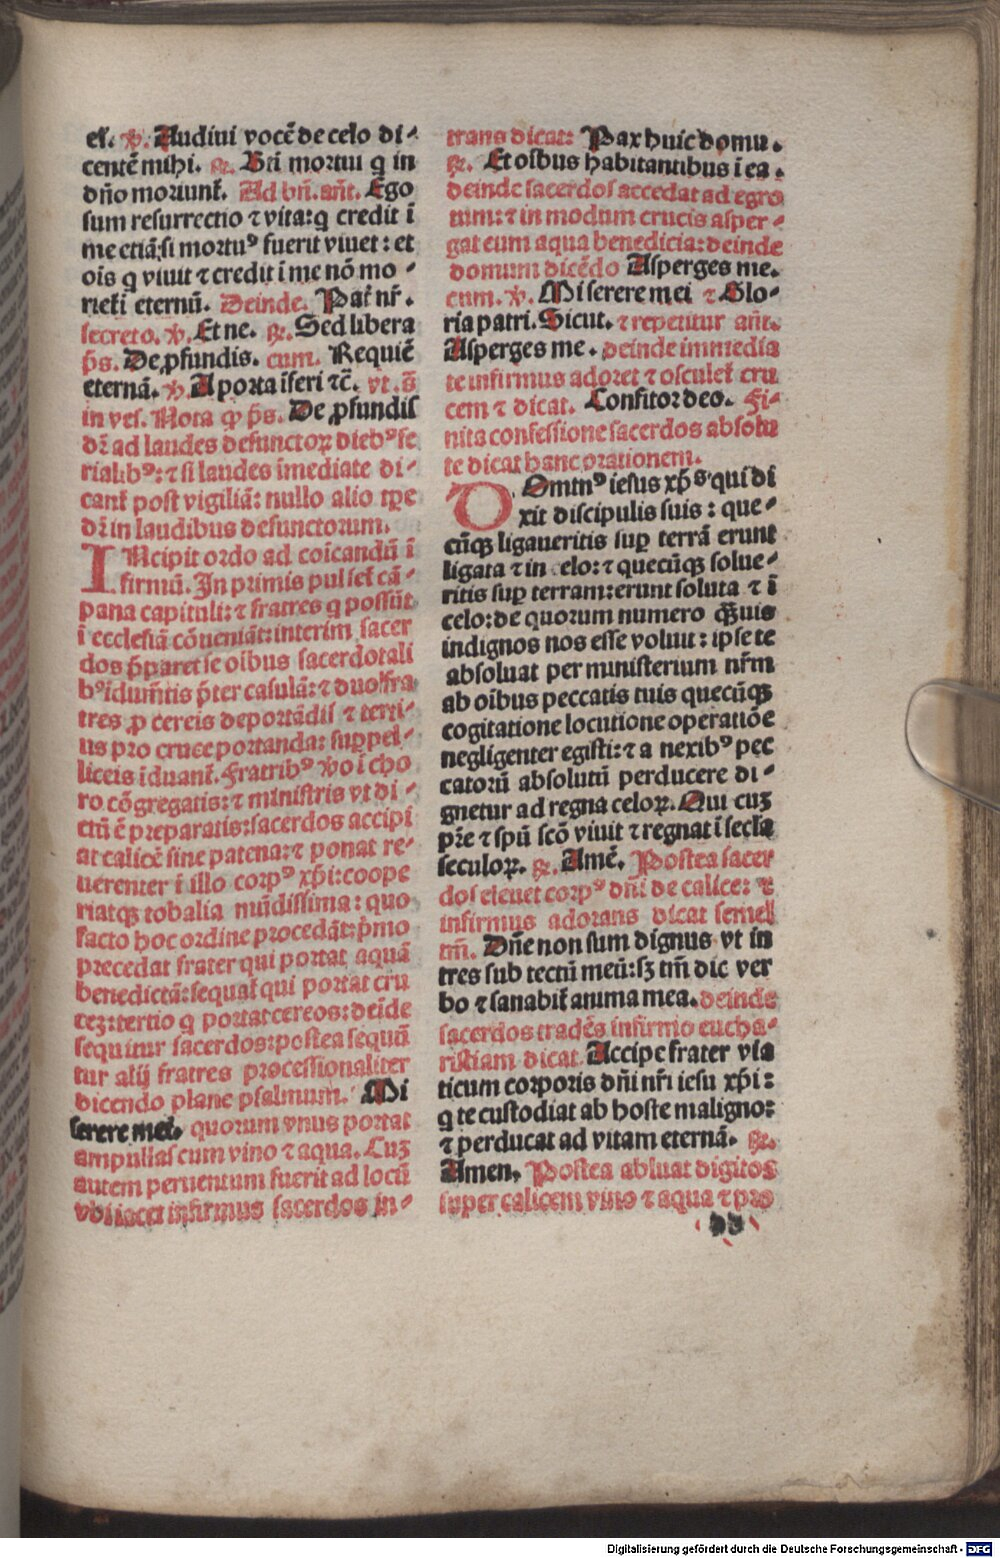 el. ℣. Audiui vocē de celo di-
centē mihi. ℟. Bti mortui q in
dn̄o moriunt̄. Ad bn̄. an̄t. Ego
sum resurrectio ⁊ vita: q credit ī
me etiā: si mortuꝰ fuerit viuet: et
oīs q viuit ⁊ credit ī me nō mo-
riet̄ ī eternū. Deinde. Pat̄ nr̄.
secreto. ℣. Et ne. ℟. Sed libera
ps̄. De ꝓfundis. cum. Requiē
eternā. ℣. A porta īferi ⁊c̄. vt. s̄
in ves. Nota ꝙ ps̄. De ꝓfundis
dr̄ ad laudes defunctoꝝ diebꝰ fe
rialibꝰ: ⁊ si laudes īmediate di-
cant̄ post vigiliā: nullo alio tp̄e
dr̄ in laudibus defunctorum.
INcipit ordo ad cōīcandū ī
firmū. In primis pulset̄ cā-
pana capituli: ⁊ fratres q possūt
ī ecclesiā cōueniāt: interim sacer
dos p̄paret se oībus sacerdotali
bꝰ īdumētis p̄ter casulā: ⁊ duos fra
tres ꝓ cereis deportādis ⁊ terti-
us pro cruce portanda: suppel-
liceis īduant̄. Fratribꝰ v̄o ī cho
ro cōgregatis: ⁊ ministris vt di-
ctū ē preparatis: sacerdos accipi
at calicē sine patena: ⁊ ponat re-
uerenter ī illo corpꝰ xp̄i: coope
riatqꝫ tobalia mūdissima: quo
facto hoc ordine procedāt: p̄mo
precedat frater qui portat aquā
benedictā: sequat̄ qui portat cru
cez: tertio q portat cereos: deīde
sequitur sacerdos: postea sequū
tur alij fratres processionaliter
dicendo plane psalmum. Mi
serere mei. quorum vnus portat
ampullas cum vino ⁊ aqua. Cuꝫ
autem peruentum fuerit ad locū
vbi iacet infirmus sacerdos in-
trans dicat: Pax huic domu.
℟. Et oībus habitantibus ī ea.
deinde sacerdos accedat ad egro
num: ⁊ in modum crucis asper-
gat eum aqua benedicta: deinde
domum dicēdo Asperges me.
cum. ℣. Miserere mei ⁊ Glo-
ria patri. Sicut. ⁊ repetitur an̄t.
Asperges me. deinde immedia
te infirmus adoret ⁊ osculet̄ cru
cem ⁊ dicat. Confitor deo. Fi-
nita confessione sacerdos absolu
te dicat hanc orationem.
DOminꝰ iesus xp̄s qui di
xit discipulis suis: que-
cūqꝫ ligaueritis suꝑ terrā erunt
ligata ⁊ in celo: ⁊ quecūqꝫ solue-
ritis suꝑ terram: erunt soluta ⁊ ī
celo: de quorum numero q̄ꝫuis
indignos nos esse voluit: ipse te
absoluat per ministerium nr̄m
ab oībus peccatis tuis quecūqꝫ
cogitatione locutione operatiōe
negligenter egisti: ⁊ a nexibꝰ pec
catorū absolutū perducere di-
gnetur ad regna celoꝝ. Qui cuꝫ
pr̄e ⁊ spū scō viuit ⁊ regnat ī secla
seculoꝝ. ℟. Amē. Postea sacer
dos eleuet corpꝰ dn̄i de calice: ⁊
infirmus adorans dicat semel
tm̄. Dn̄e non sum dignus vt in
tres sub tectū meū: sꝫ tm̄ dic ver
bo ⁊ sanabit̄ anima mea. deinde
sacerdos tradēs infirmo eucha-
ristiam dicat. Accipe frater via
ticum corporis dn̄i nr̄i iesu xp̄i:
q te custodiat ab hoste maligno:
⁊ perducat ad vitam eternā. ℟.
Amen. Postea abluat digitos
super calicem vino ⁊ aqua ⁊ pro
Digitalisierung gefördert durch die Deutsche Forschungsgemeinschaft - DFG